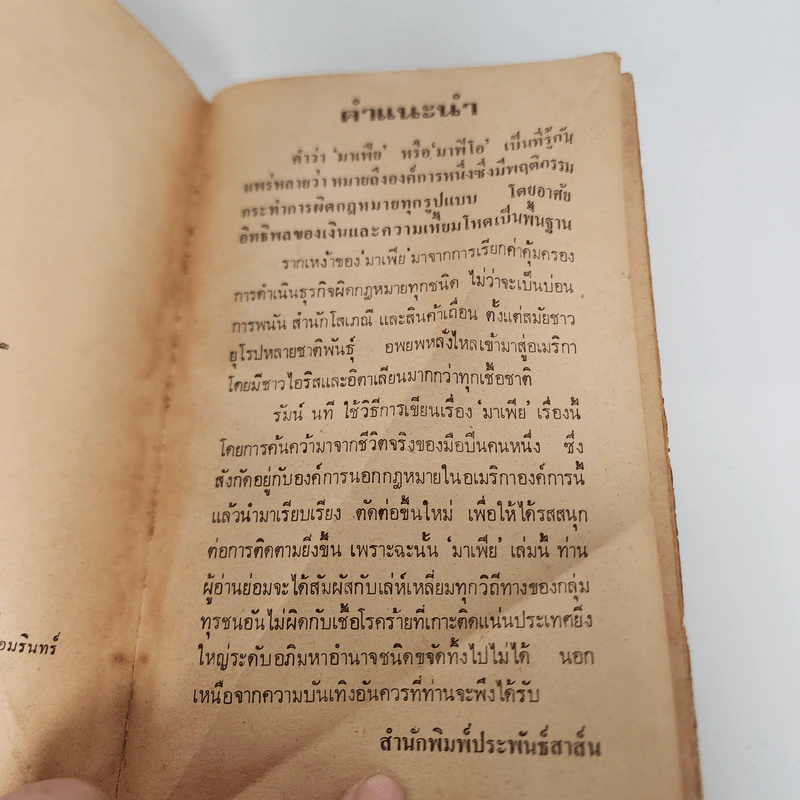 อมรินทร์
คำแนะนำ
คำว่า 'มาเฟีย' หรือ 'มาฟีโอ' เป็นที่รู้กัน
แพร่หลายว่า หมายถึงองค์การหนึ่งซึ่งมีพฤติกรรม
กระทำการผิดกฎหมายทุกรูปแบบ โดยอาศัย
อิทธิพลของเงินและความเหี้ยมโหดเป็นพื้นฐาน
รากเหง้าของ 'มาเฟีย' มาจากการเรียกค่าคุ้มครอง
การดำเนินธุรกิจผิดกฎหมายทุกชนิด ไม่ว่าจะเป็นบ่อน
การพนัน สำนักโสเภณี และสินค้าเถื่อน ตั้งแต่สมัยชาว
ยุโรปหลายชาติพันธุ์ อพยพหลั่งไหลเข้ามาสู่อเมริกา
โดยมีชาวไอริสและอิตาเลียนมากกว่าทุกเชื้อชาติ
รัมน์ นที ใช้วิธีการเขียนเรื่อง 'มาเฟีย' เรื่องนี้
โดยการค้นคว้ามาจากชีวิตจริงของมือปืนคนหนึ่ง ซึ่ง
สังกัดอยู่กับองค์การนอกกฎหมายในอเมริกาองค์การนี้
แล้วนำมาเรียบเรียง ตัดต่อขึ้นใหม่ เพื่อให้ได้รสสนุก
ต่อการติดตามยิ่งขึ้น เพราะฉะนั้น 'มาเฟีย' เล่มนี้ ท่าน
ผู้อ่านย่อมจะได้สัมผัสกับเล่ห์เหลี่ยมทุกวิถีทางของกลุ่ม
ทุรชนอันไม่ผิดกับเชื้อโรคร้ายที่เกาะติดแน่นประเทศยิ่ง
ใหญ่ระดับอภิมหาอำนาจชนิดขจัดทิ้งไปไม่ได้ นอก
เหนือจากความบันเทิงอันควรที่ท่านจะพึงได้รับ
สำนักพิมพ์ประพันธ์สาส์น